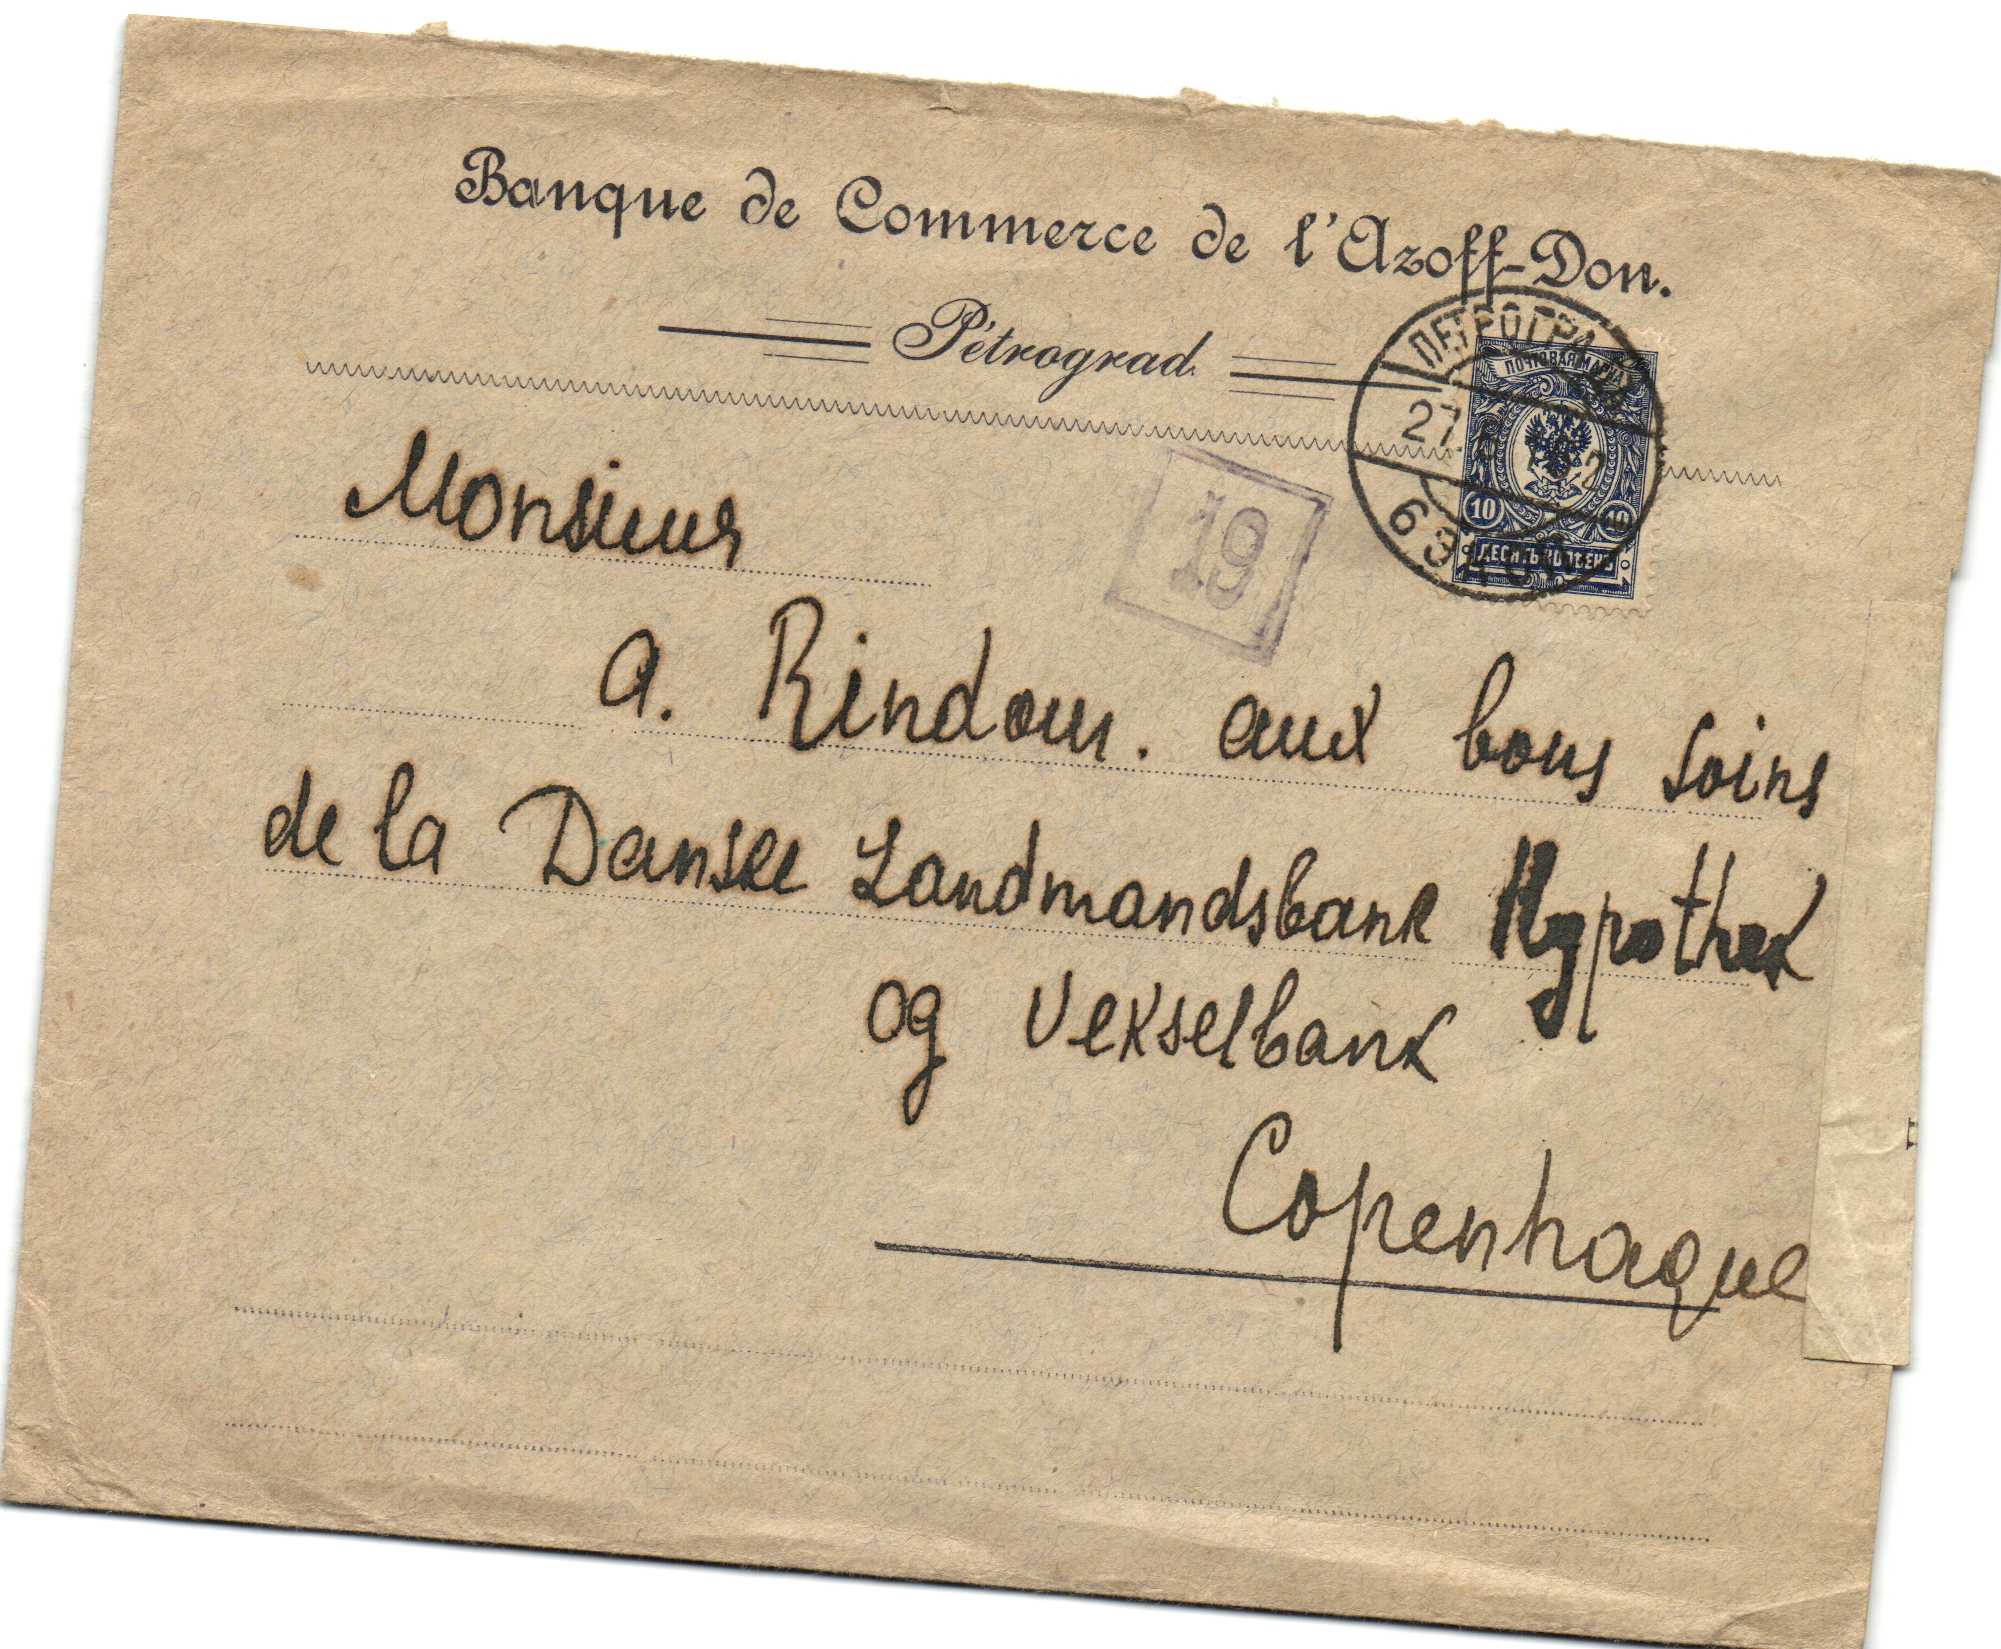 Banque de Commerce de l'Azoff-Don.
Pétrograd.
ПЕТРОГРАД
27
ПОЧТОВАЯ МАРКА
10 10
ДЕСЯТЬ КОПѢЕКЪ
19
Monsieur
A. Rindom. aux bons soins
de la Danske Landmandsbank Hypothek
og Vekselbank
Copenhague